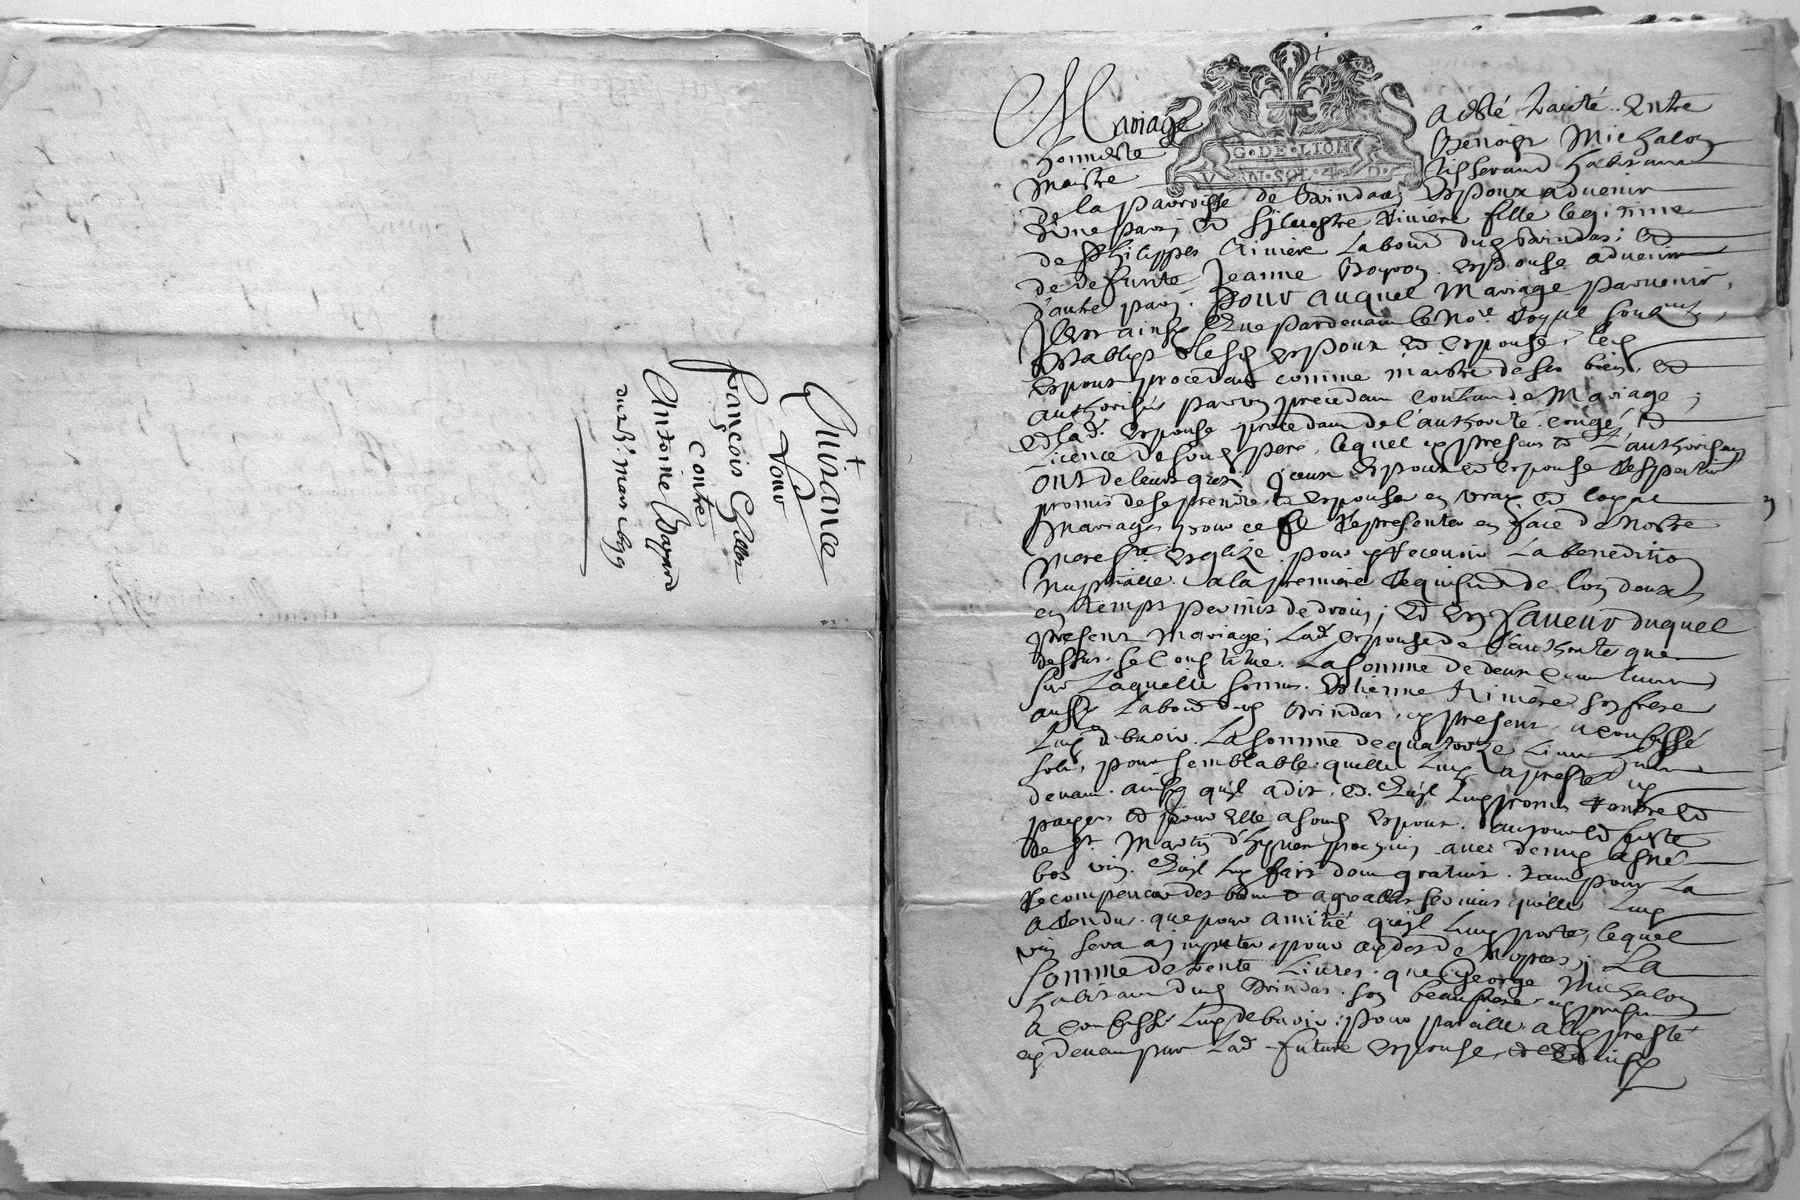 Quittance
Pour
François
Contre
Antoine Bayard
du mars
G·DE·LION
V N·SOL·4 D·
Mariage a esté traité Entre
honneste Benoist Michalon
Maistre tisserand habitant
de la parroisse de Brindas Espoux aduenir
d'une part et Syluestre Riuiere fille legitime
de Philippes Riuiere Labour dud Brindas; et
de deffunte Jeanne Espouse aduenir
d'autre part. Pour auquel Mariage paruenir,
ainsy Que pardeuant le No.re Royal
Establys lesd Espoux et Espouse, led
Espoux procedant comme maistre de ses biens et
authorisés procedant Contrat de Mariage;
et lad. Espouse procedant de l'authorité congé, et
Licence de sond pere, lequel cy present et l'authorisant
ont de leurs gréz, jceux Espoux et Espouse respectiu
promis de se prendre et Espouser en vray et loyal
Mariage, pour ce se Representer en face de Nostre
Mere S.te Esglize pour y Receuoir La benediction
Nuptialle. a la premiere Requisition de l'un d'eux
en temps permis de droit; et En faueur duquel
present Mariage, Lad. Espouse de l'authorité que
dessus. se Constitue. La somme de deux Cent liures
sur Laquelle somme. Estienne Riuiere son frere
aussy Labour. dud Brindas, cy present, a confessé
Luy debuoir. La somme de quatorze Liures
solz, pour semblable. quelle Luy a presté cy
deuant. ainsy qu'jl a dit, et Qu'jl luy promis rendre et
payer et pour Elle a sond Espoux. au jour et feste
de St. Martin d'hyuer prochain auec demy asnée
bon vin. Qu'jl luy fait don gratuit. tant pour La
Recompence des bons et agreables seruices qu'elle Luy
a rendus. que pour amitié qu'jl Luy porte, lequel
vin sera a jmputer pour aydes de Nopces; La
somme de trente Liures. que George Michalon
habitant dud Brindas. son beaufrere cy present
a confessé Luy debuoir, pour pareille a luy presté
cy deuant par Lad. future Espouse,